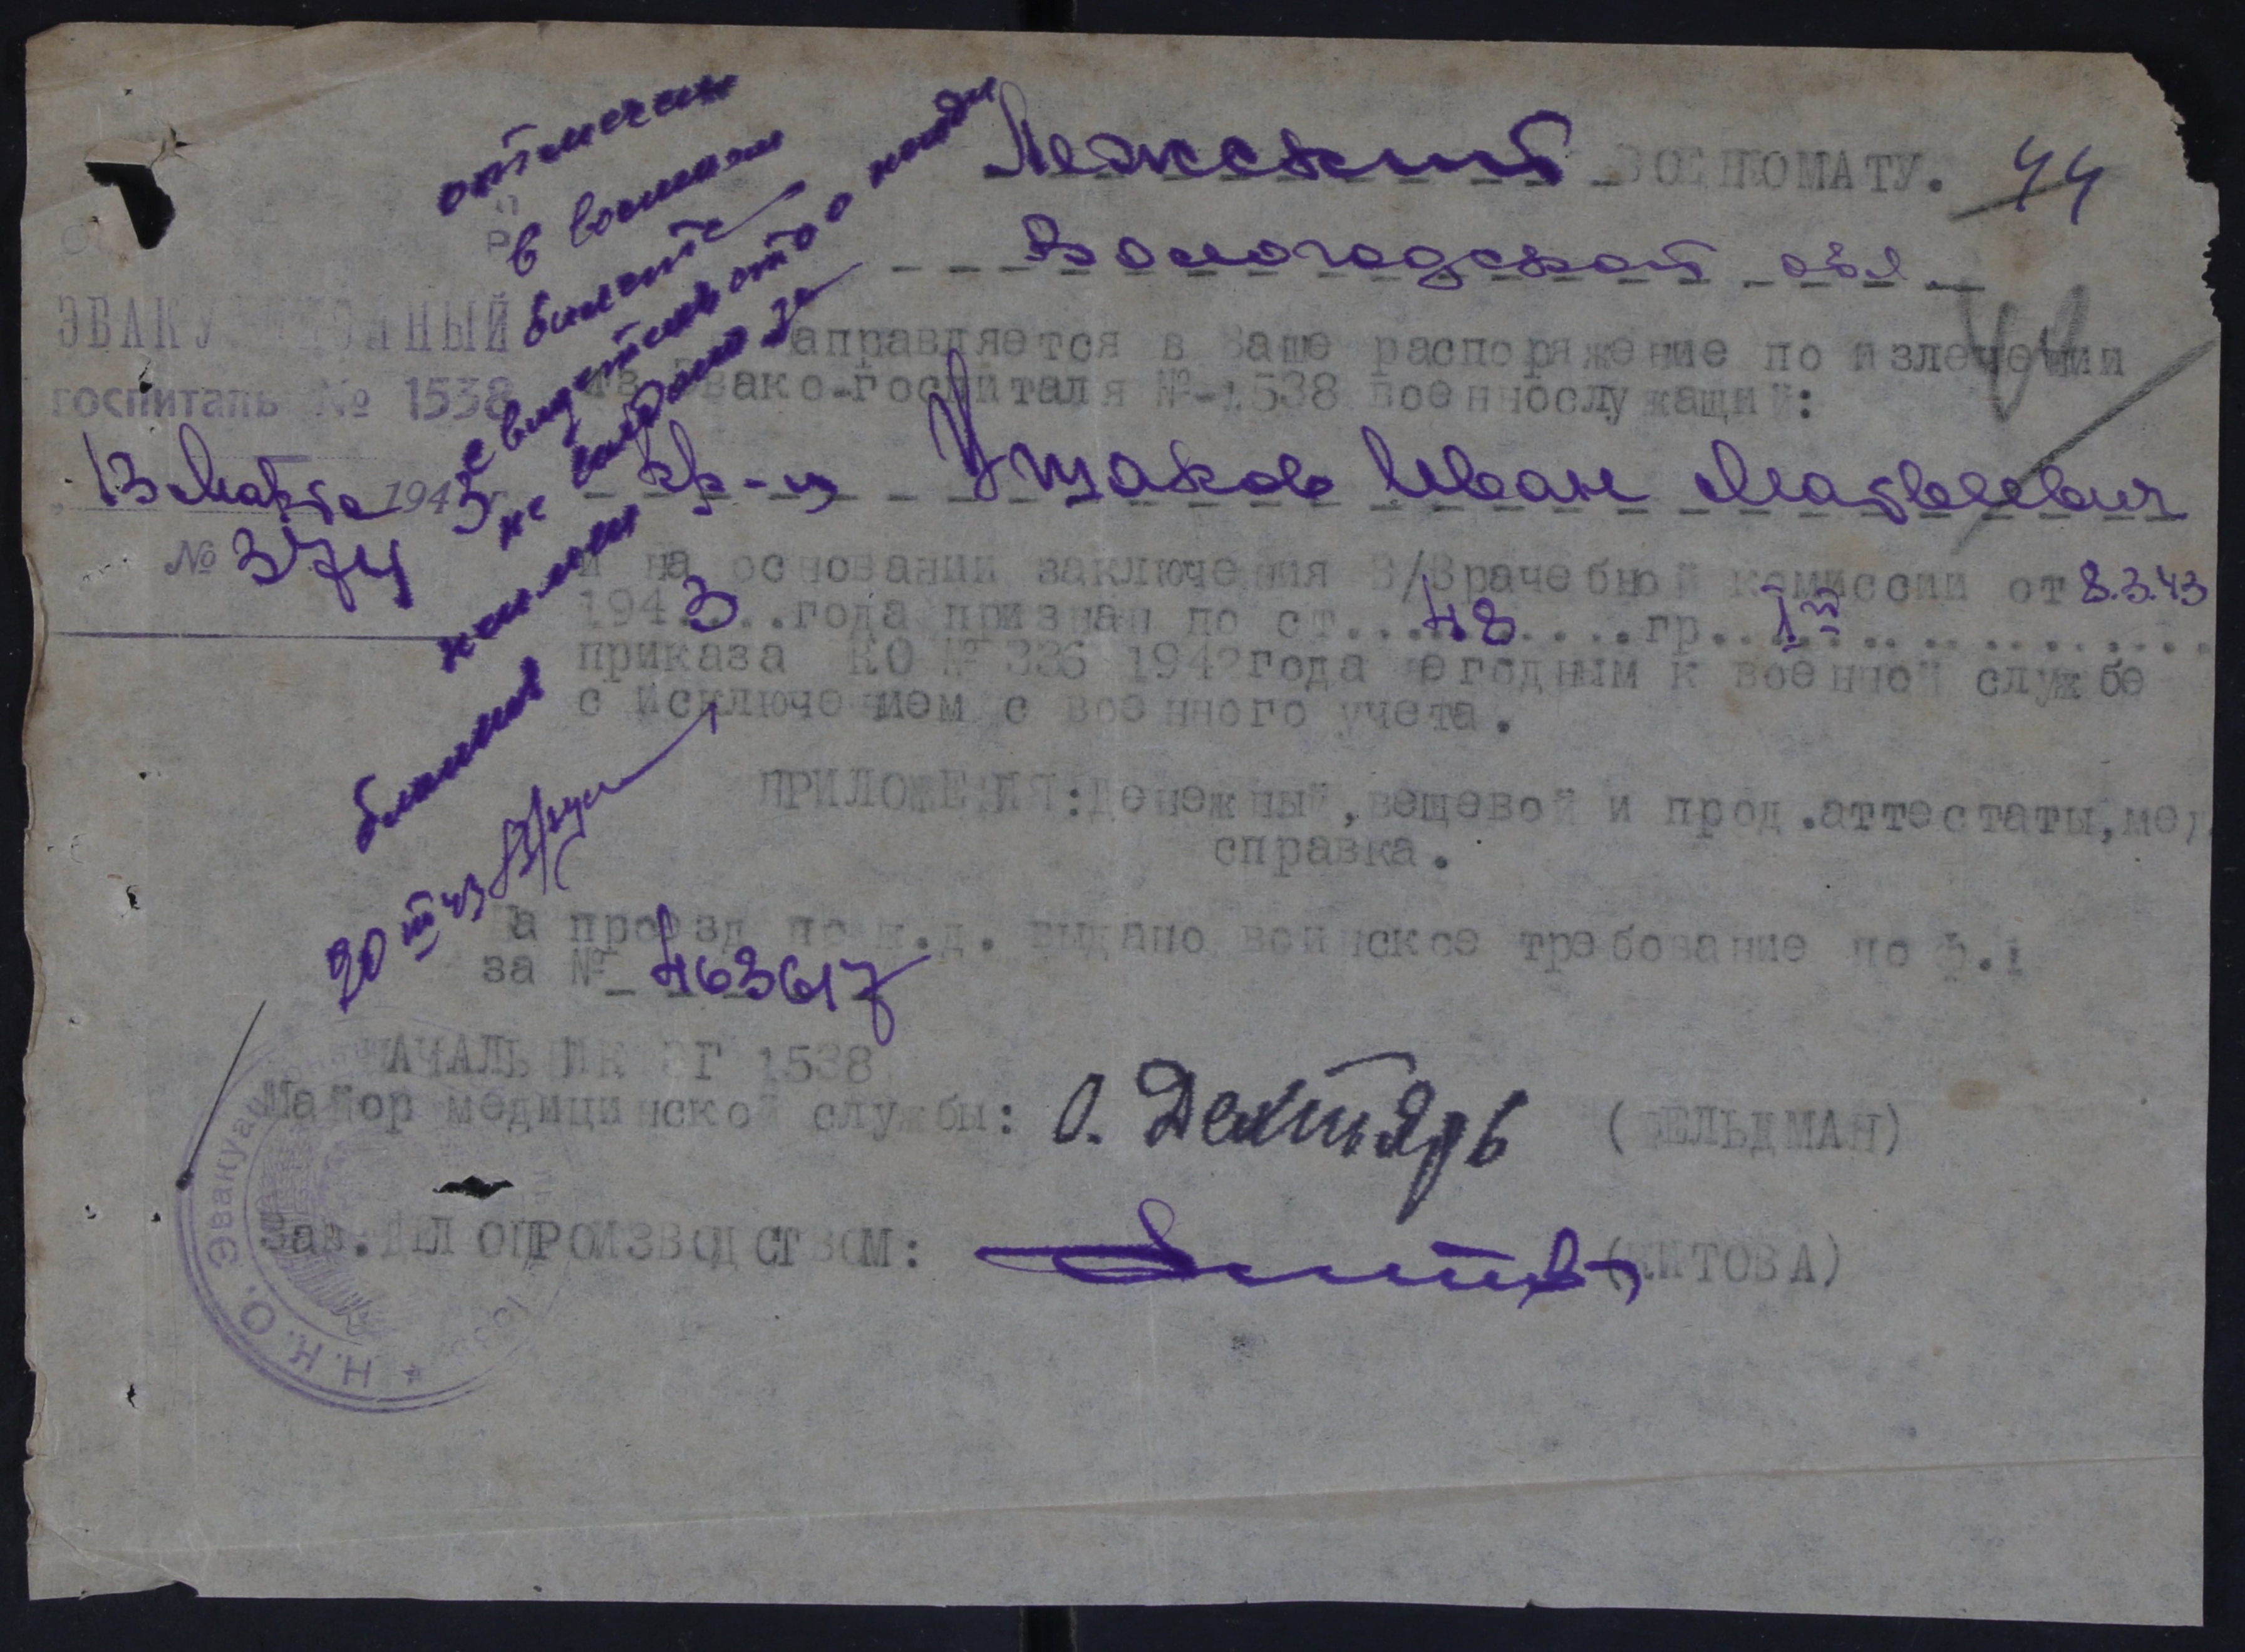 Лежский ВОЕНКОМАТУ. 44
Вологодской обл.
ЭВАКУАЦИОННЫЙ
госпиталь № 1538
13 Марта 1943 г.
№ 374
Направляется в Ваше распоряжение по излечении
из Эвако-госпиталя №-1538 военнослужащий:
кр-ц Ушаков Иван Матвеевич
и на основании заключения В/Врачебной комиссии от 8.3.43
1943...года признан по ст....48.....гр...I
приказа НКО № 336 1942 года негодным к военной службе
с исключением с военного учета.
ПРИЛОЖЕНИЯ: Денежный, вещевой и прод. аттестаты, мед
справка.
На проезд по ж.д. выдано воинское требование по ф.1
за № 463617
НАЧАЛЬНИК ЭГ 1538
Майор медицинской службы: (ФЕЛЬДМАН)
Зав. ДЕЛОПРОИЗВОДСТВОМ: (КИТОВА)
отмечен
в военном
билете
свидетельство о
не выдано за
неимением
бланков
20 III 43
Н.К.О. Эвакуационный